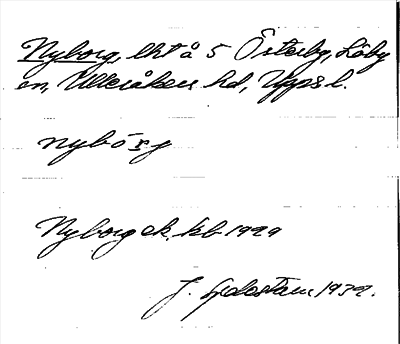 Nyborg, lht å 5 Österby, Läby
sn, Ulleråkers hd, Upps. l.
nybo̊r̤j
Nyborg ek. kb 1929
J. Sjdestam 1932.